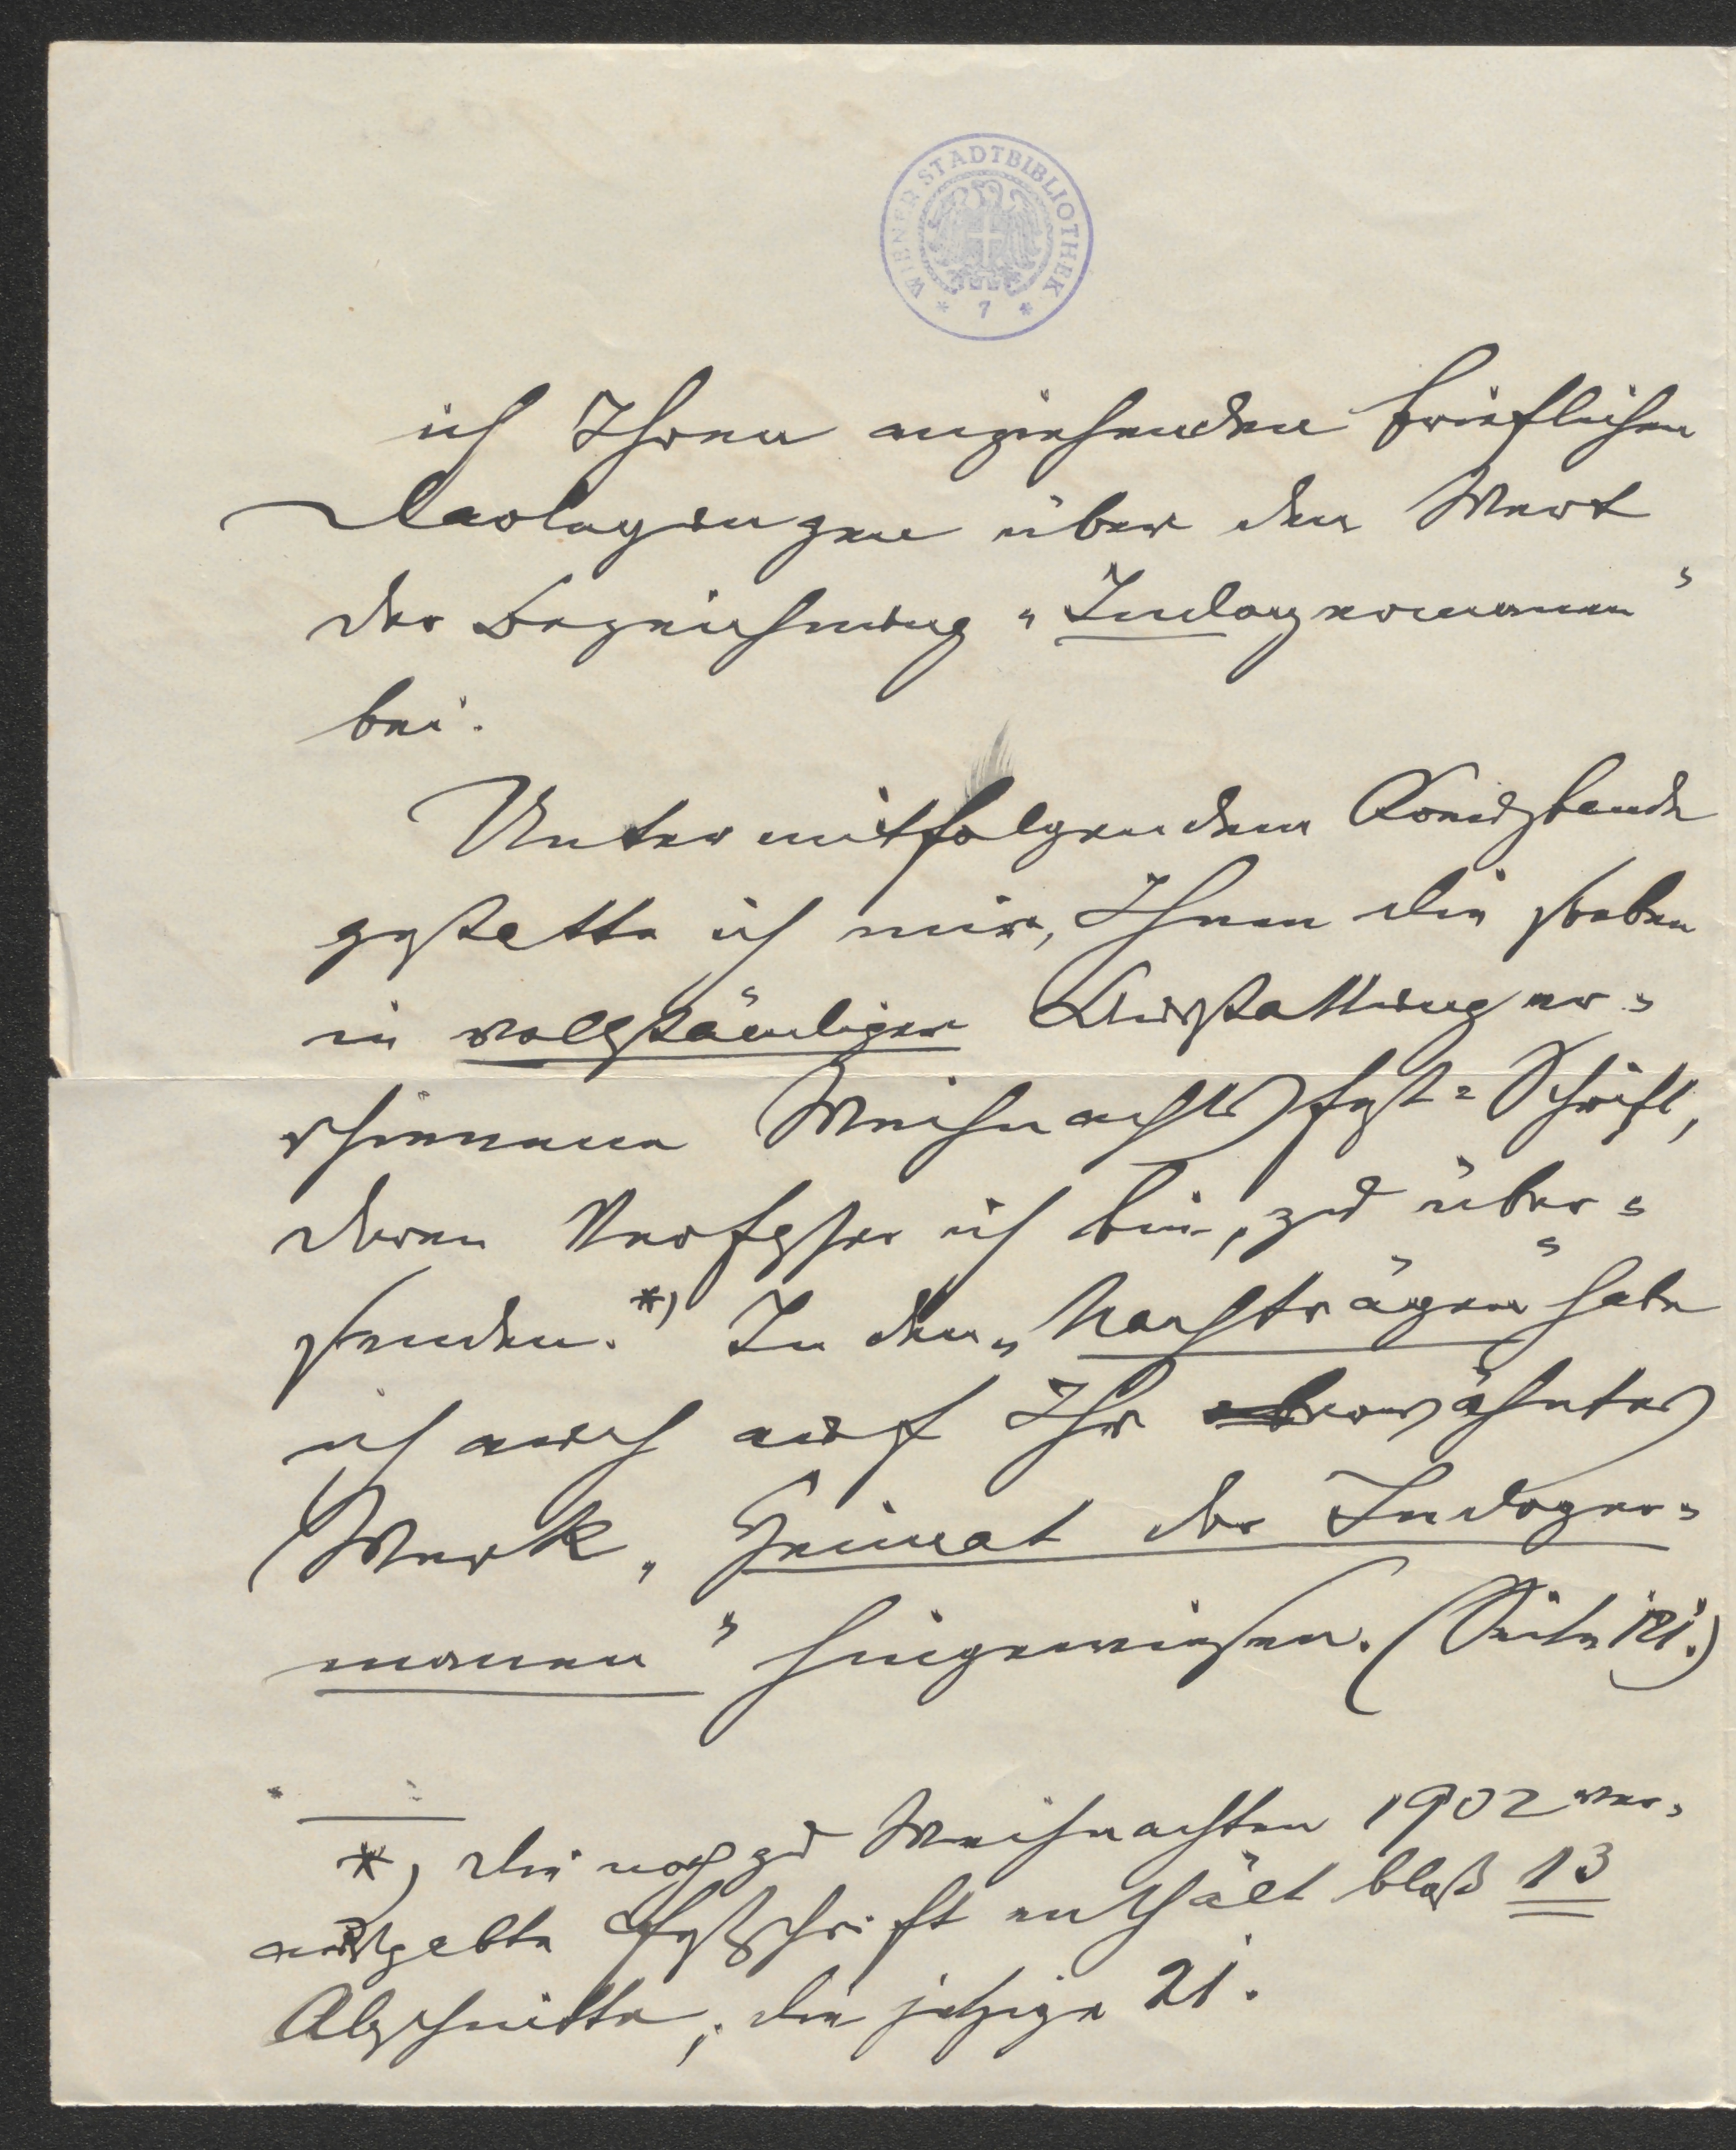 WIENER STADTBIBLIOTHEK
* 7 *
ich Ihren anziehenden brieflichen
Darlegungen über den Wert
der Bezeichnung „Indogermanen“
bei.
Unter mitfolgendem Kreuzbande
gestatte ich mir, Ihnen die soeben
in vollständiger Ausstattung er=
schienene Weihnachtsfest=Schrift,
deren Verfasser ich bin, zu über=
senden.*) In den „Nachträgen“ habe
ich auch auf Ihr erwähntes
Werk „Heimat der Indoger=
manen“ hingewiesen. (Seite 121.)
*) Die noch zu Weihnachten 1902 ver=
ausgabte Festschrift enthält bloß 13
Abschnitte; die jetzige 21.